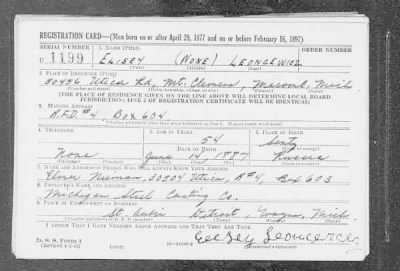 REGISTRATION CARD—(Men born on or after April 28, 1877 and on or before February 16, 1897)
SERIAL NUMBER 1. NAME (Print)
U 1199 ELISEY (NONE) LEONCEWICZ
2. PLACE OF RESIDENCE (Print)
30456 Utica Rd, Mt. Clemens, Macomb, Mich
(THE PLACE OF RESIDENCE GIVEN ON THE LINE ABOVE WILL DETERMINE LOCAL BOARD
JURISDICTION; LINE 2 OF REGISTRATION CERTIFICATE WILL BE IDENTICAL)
3. MAILING ADDRESS
R.F.D. #4 Box 604
4. TELEPHONE 5. AGE IN YEARS 6. PLACE OF BIRTH
54
DATE OF BIRTH
None June 14, 1887 Russia
7. NAME AND ADDRESS OF PERSON WHO WILL ALWAYS KNOW YOUR ADDRESS
Nieman, 30504 Utica, R#4, Box 603
8. EMPLOYER'S NAME AND ADDRESS
Michigan Steel Casting Co.
9. PLACE OF EMPLOYMENT OR BUSINESS
St. Aubin Detroit, Wayne, Mich.
I AFFIRM THAT I HAVE VERIFIED ABOVE ANSWERS AND THAT THEY ARE TRUE.
D. S. S. Form 1
(Revised 4-1-42)